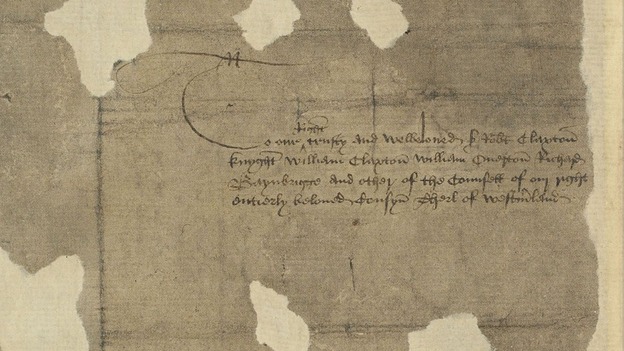 Right
To our trusty and welbeloued s' Rob't Claxton
knyght William Claxton William Ineston Richard
Baynbrigge and other of the Counsell of our right
entierly beloued Cousyn Therl of Westm'land